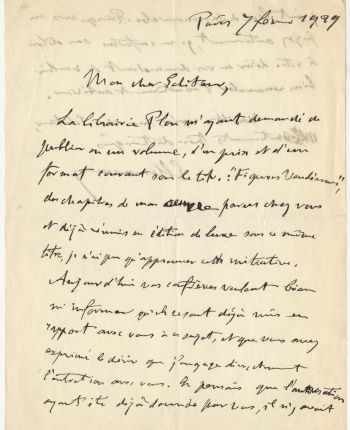 Paris 7 février 1929
Mon cher Editeur,
La librairie Plon m'ayant demandé de
publier en un volume, d'un prix et d'un
format courant sous le titre: "Figures Vendéennes",
des chapitres de mon œuvre parus chez vous
et déjà réunis en édition de luxe sous ce même
titre, je n'ai pu qu'approuver cette initiative.
Aujourd'hui vos confrères veulent bien
m'informer qu'ils se sont déjà mis en
rapport avec vous à ce sujet, et que vous avez
exprimé le désir que j'engage directement
l'entretien avec vous. Je pensais que l'autorisation
ayant été déjà donnée par vous, il n'y avait